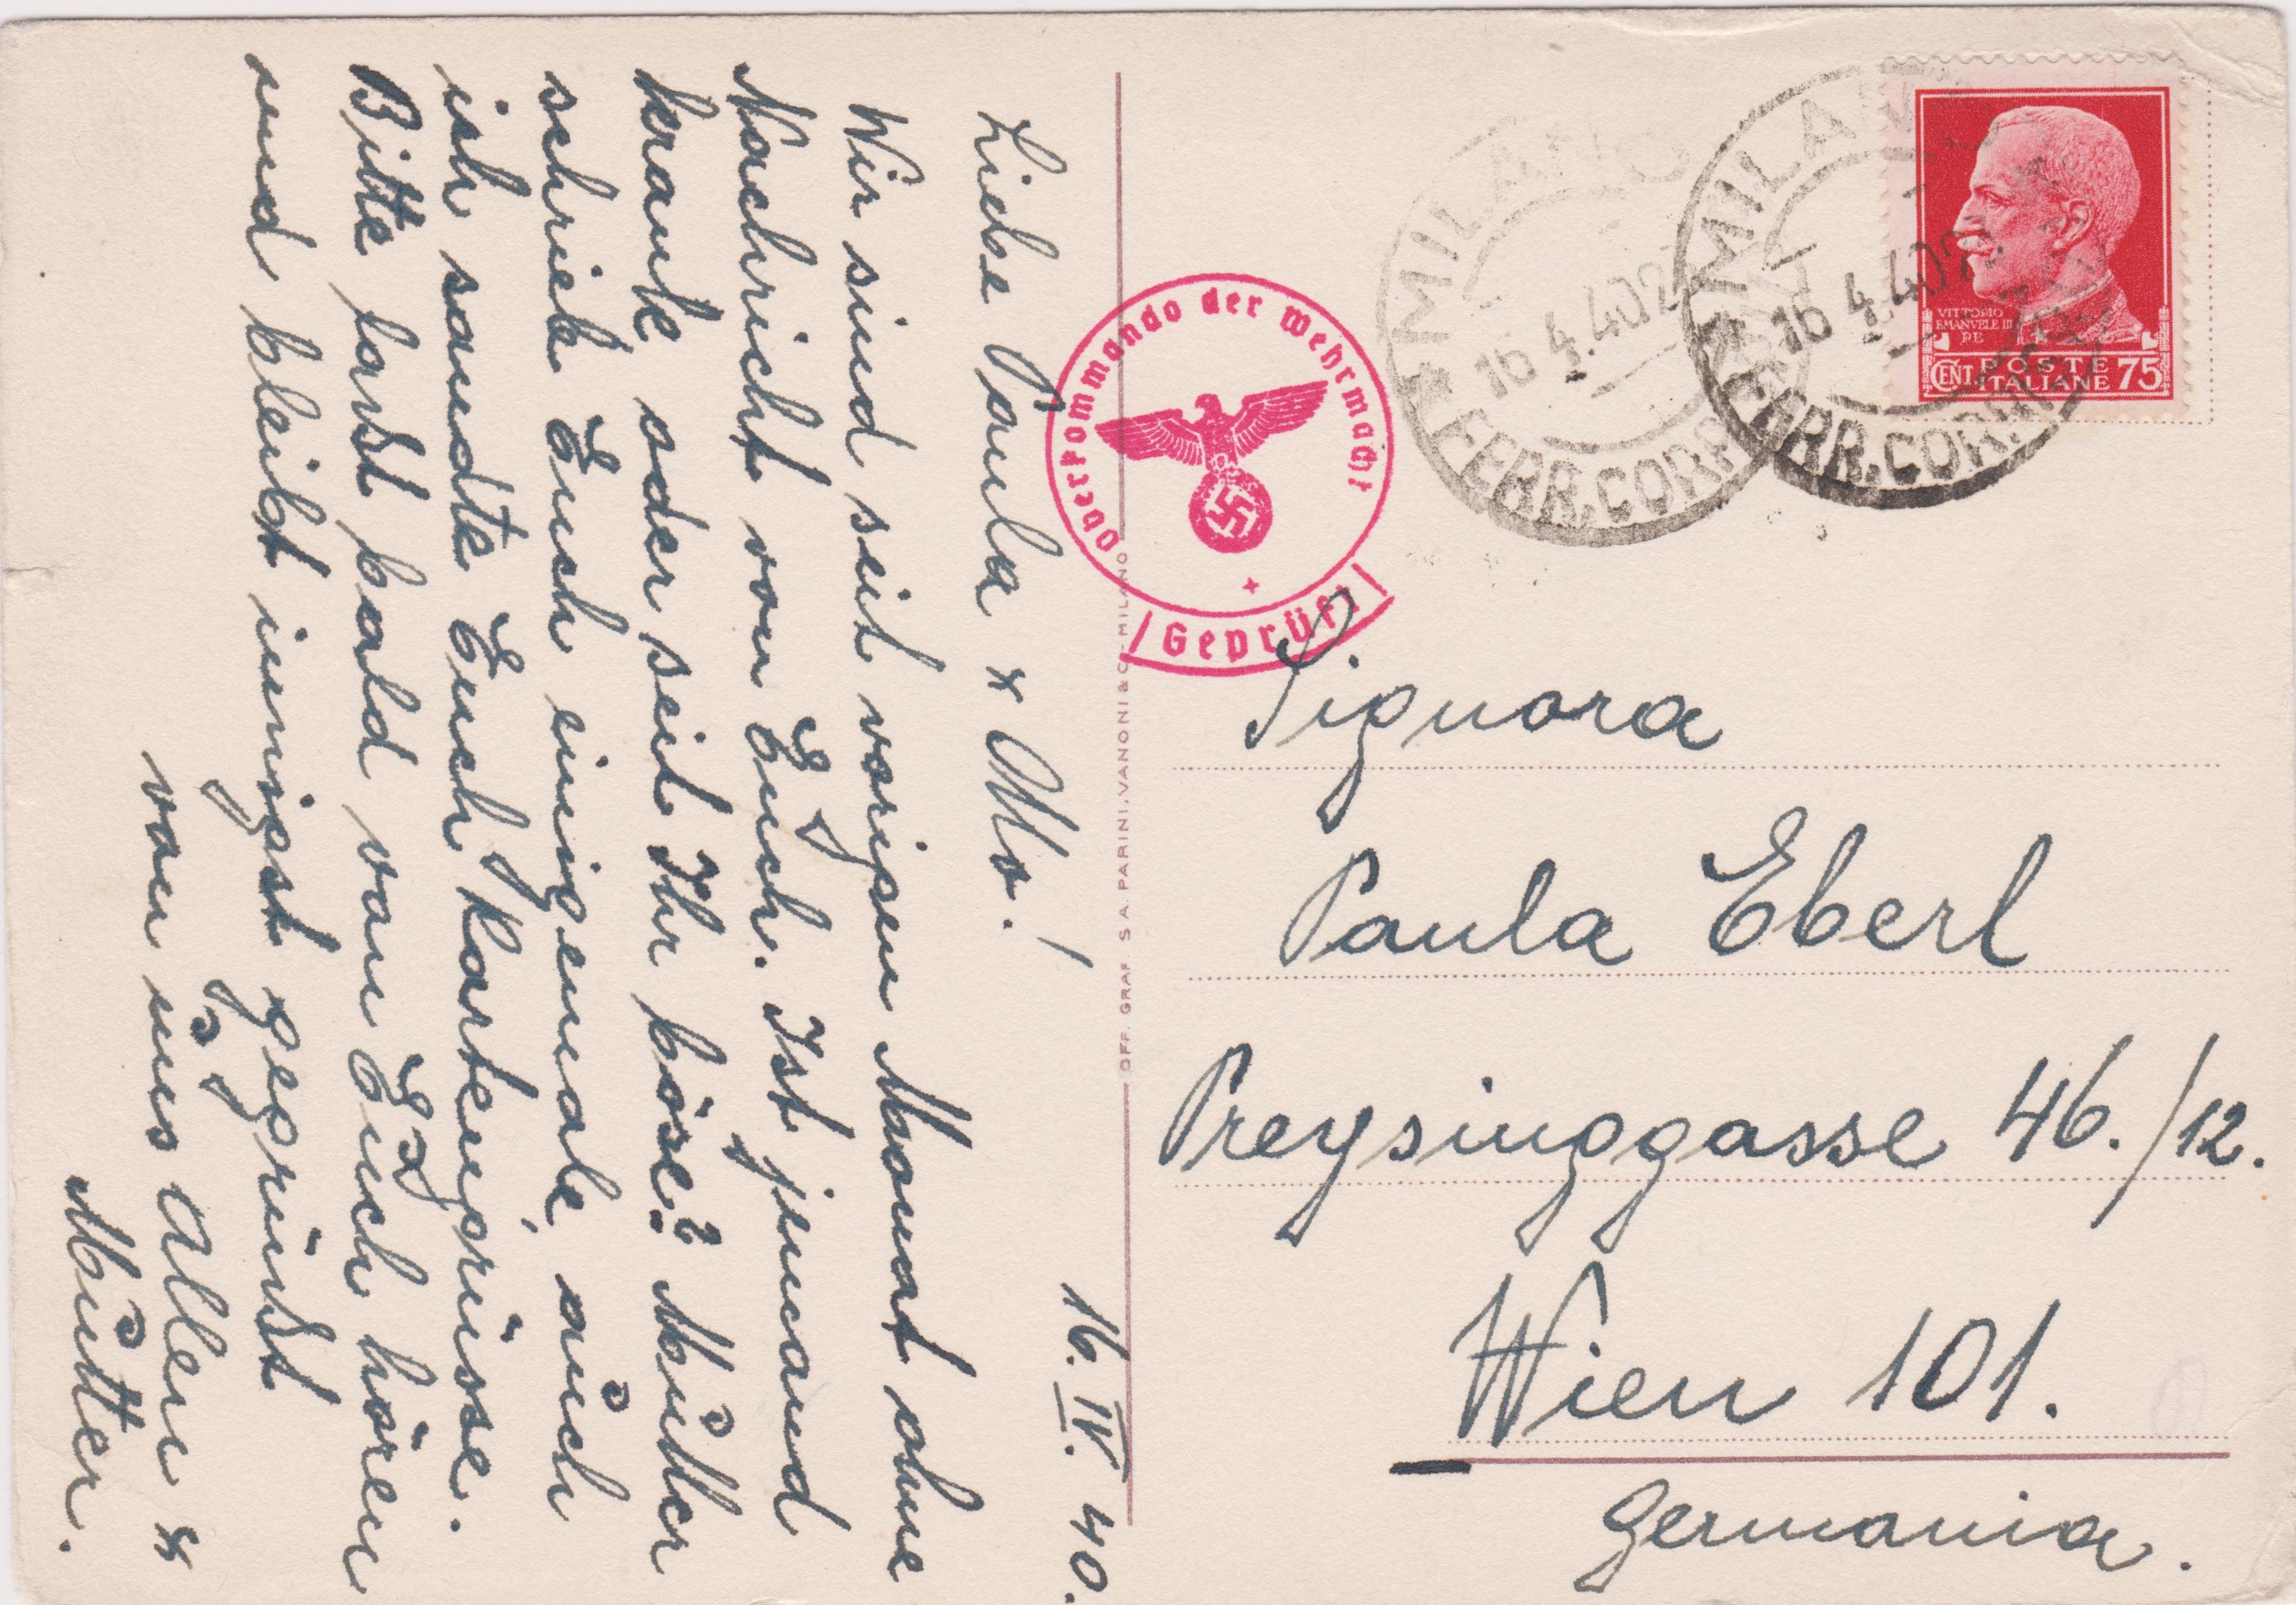 16. IV. 40.
Liebe Paula & Mo.!
Wir sind seit vorigen Monat ohne
Nachricht von Euch. Ist jemand
krank oder seit Ihr böse? Mutter
schrieb Euch einigemale, auch
ich sandte Euch Kartengrüsse.
Bitte lasst bald von Euch hören
und bleibt innigst gegrüsst
von uns Allen &
Mutter.
OFF. GRAF. S A. PARINI, VANONI & C - MILANO
Oberkommando der Wehrmacht
Geprüft
MILANO
16.4.40
FERR. CORR.
MILANO
16.4.40
FERR. CORR.
VITTORIO
EMANVELE III
RE
CENT POSTE 75
ITALIANE
Signora
Paula Eberl
Preysinggasse 46./12.
Wien 101.
Germania.